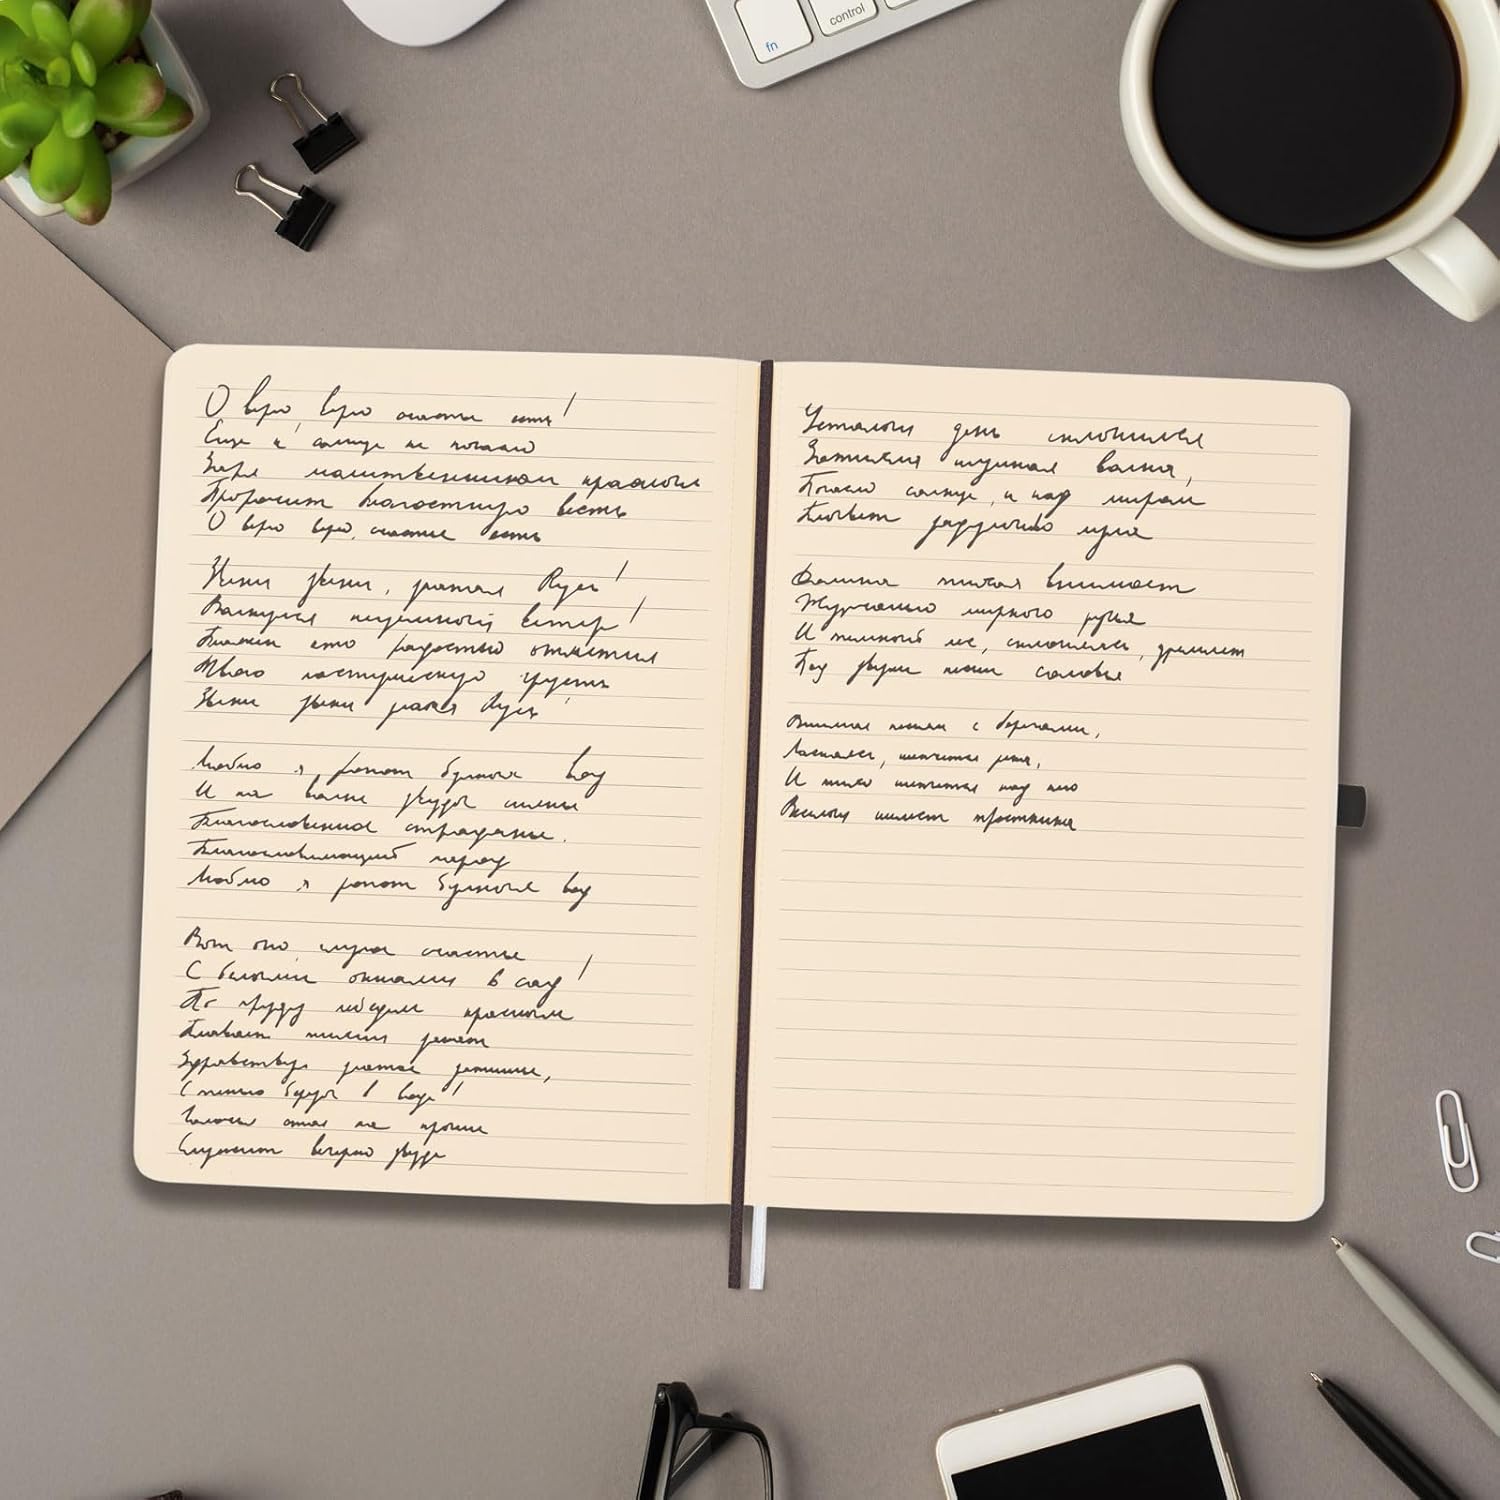 fn
control
О верю, верю счастье есть!
Еще и солнце не погасло
Заря молитвенником красным
Пророчит благостную весть
О верю верю, счастье есть
Звени звени, златая Русь!
Волнуйся неуемный ветер!
Блажен кто радостью отметил
Твою пастушескую грусть
Звени звени златая Русь!
Люблю я ропот буйных вод
И на волне звезды сиянье
Благословенное страданье.
Благословляющий народ
Люблю я ропот буйных вод
Вот оно, глупое счастье
С белыми окнами в сад!
По пруду лебедем красным
Плавает тихий закат
Здравствуй златое затишье,
С тенью в воде!
стая на крыше
вечерню звезде
Усталый день склонился
Затихла шумная волна,
Погасло солнце, и над миром
Плывет задумчиво луна
Долина тихая внимает
Журчанью мирного ручья
И темный лес, склоняясь, дремлет
Под звуки песни соловья
Внимая песням с берегами,
Ласкаясь, шепчется река,
И тихо над нею
Веселый шелест тростника